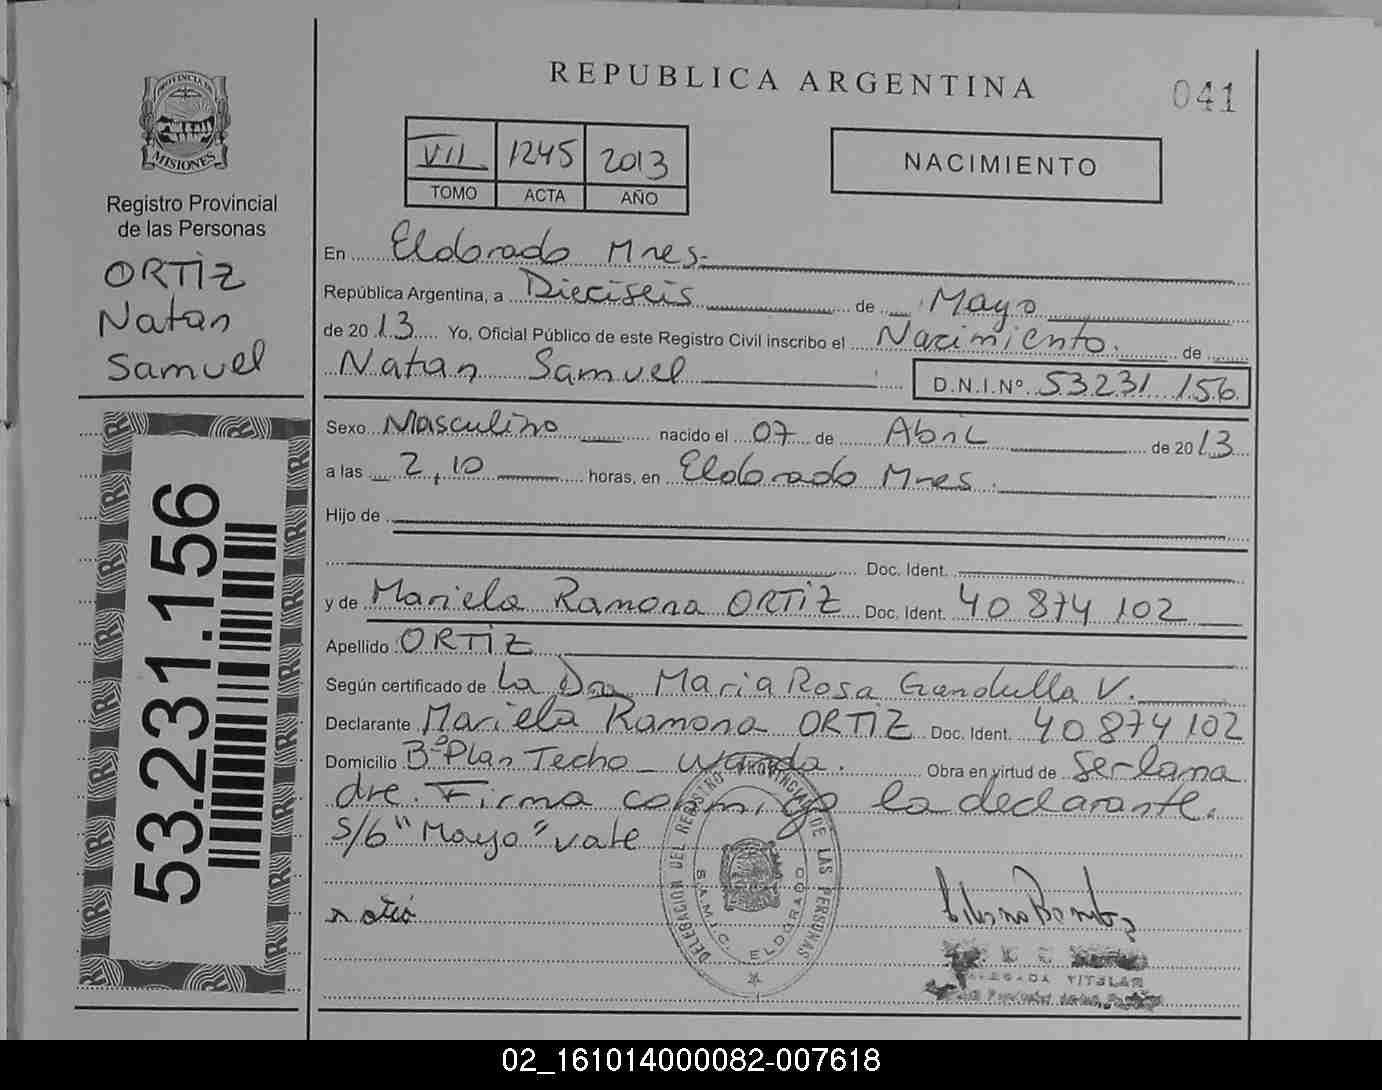 REPUBLICA ARGENTINA
041
PROVINCIA DE
MISIONES
Registro Provincial
de las Personas
ORTIZ
Natan
Samuel
53.231.156
VII 1245 2013
TOMO ACTA AÑO
NACIMIENTO
En Eldorado Mnes.
República Argentina, a Dieciseis de Mayo
de 2013 Yo, Oficial Público de este Registro Civil inscribo el Nacimiento. de
Natan Samuel D.N.I.Nº 53.231.156
Sexo Masculino nacido el 07 de Abril de 2013
a las 2,10 horas, en Eldorado Mnes.
Hijo de
Doc. Ident.
y de Mariela Ramona ORTIZ Doc. Ident. 40 874 102
Apellido ORTIZ
Según certificado de La Dra Maria Rosa V.
Declarante Mariela Ramona ORTIZ Doc. Ident. 40 874 102
Domicilio Bº Plan Techo - Wanda. Obra en virtud de Ser la ma
dre. Firma conmigo la declarante.
s/b "Mayo" vale
DELEGACION DEL REGISTRO PROVINCIAL DE LAS PERSONAS
S.A.M.I.C. ELDORADO
TITULAR
02_161014000082-007618